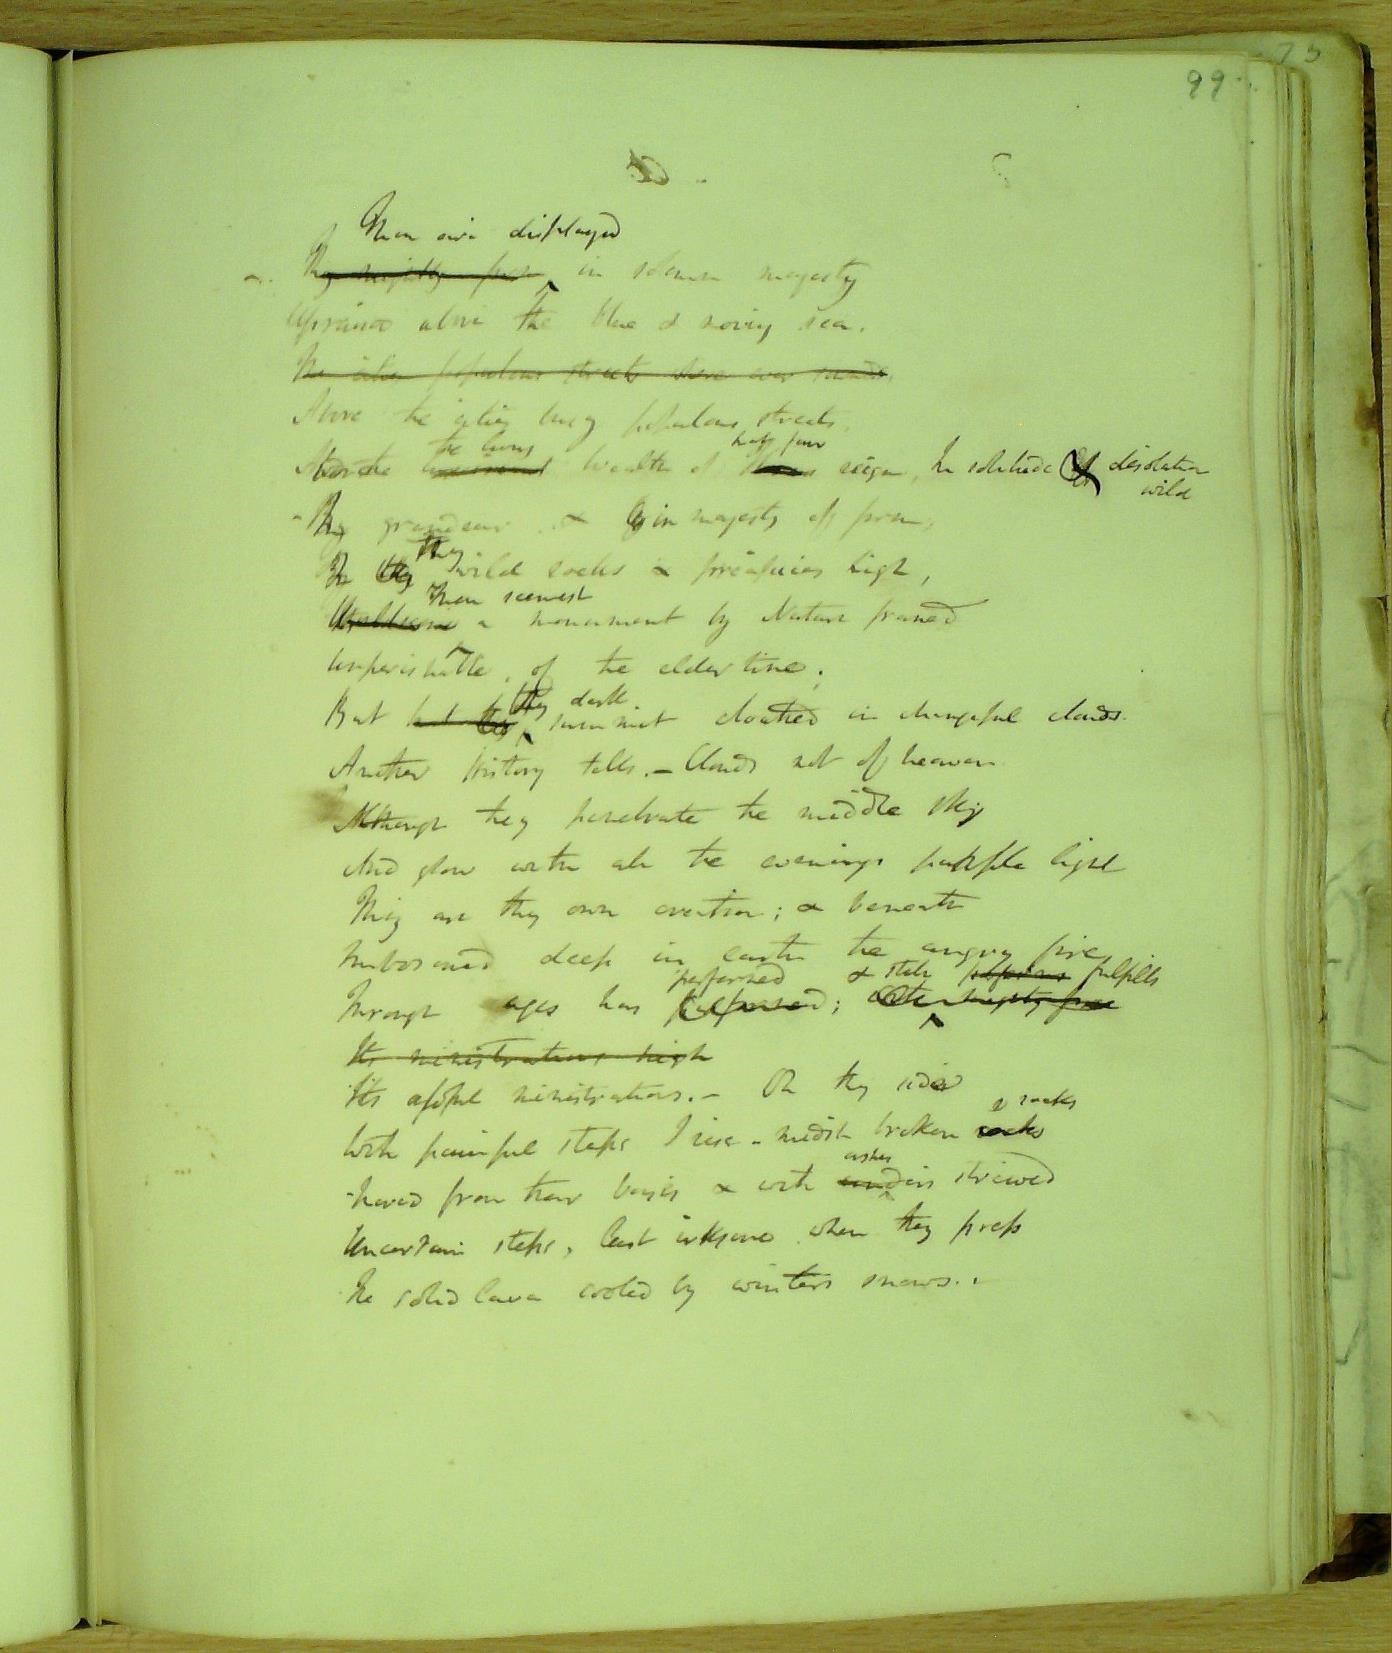 75
99
Thou art displayed
Thy mighty form in solemn majesty
Upraised above the blue & moving sea.
The cities populous streets
Above the cities busy populous streets,
the living half four
Above the wealth of reign, In solitude of desolation
wild
Thy grandeur & in majesty of form,
thy
In thy wild rocks & precipices high,
Thou seemest
a monument by Nature framed
Unperishable, of the elder time;
thy dark
But summit cloathed in changeful clouds.
Another history tells. – Clouds not of heaven
Although they penetrate the middle sky
And glow with all the evenings purple light
They are thy own creation; & beneath
Embosomed deep in earth the angry fire
performed & still fulfills
Through ages has ; mighty force
Its ministrations high
Its awful ministrations. – On thy side
& rocks
With painful steps I rise – midst broken rocks
ashes
Moved from their basis & with cinders strewed
Uncertain steps, least irksome when they press
The solid lava cooled by winters snows..